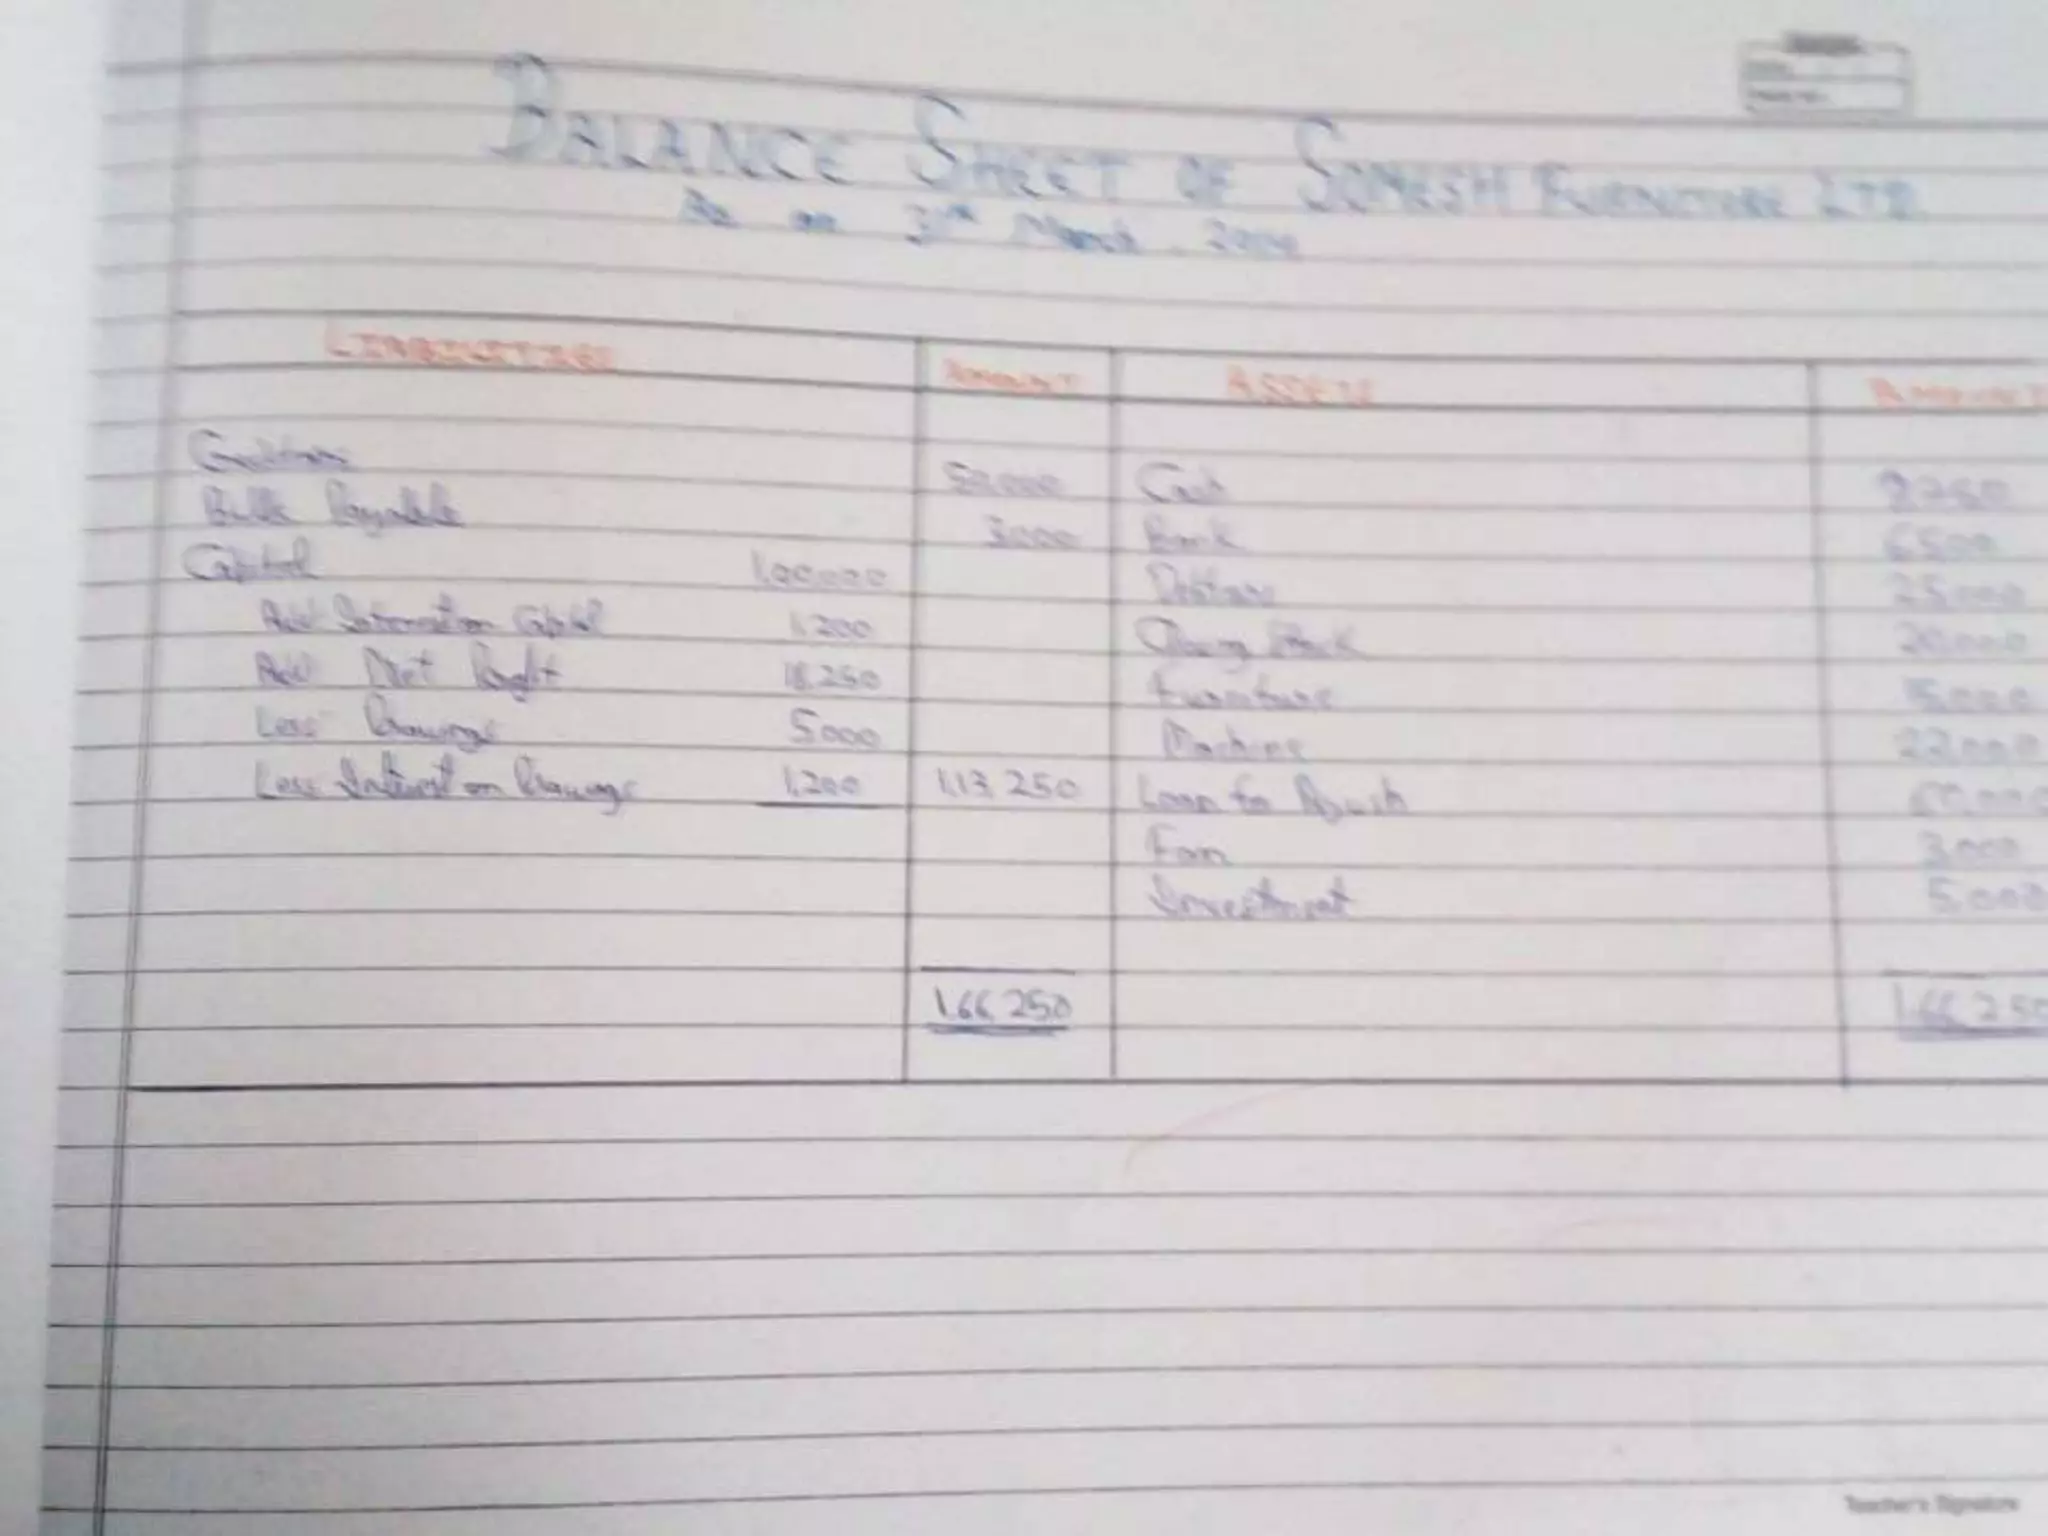 BALANCE SHEET OF SOMESH FURNITURE LTD.
As on 31st March,
LIABILITIES AMOUNT ASSETS AMOUNT
Creditors 50,000 Cash
Bills Payable 3000 Bank 6500
Capital 1,00,000 Debtors 25,000
Add Interest on Capital 1,200 Closing Stock 20,000
Add Net Profit 18,250 Furniture 15,000
Less Drawings 5000 Machine 22,000
Less Interest on Drawings 1,200 1,13,250 Loan to
3,000
Investment 5,000
1,66,250 1,66,250
Teacher's Signature